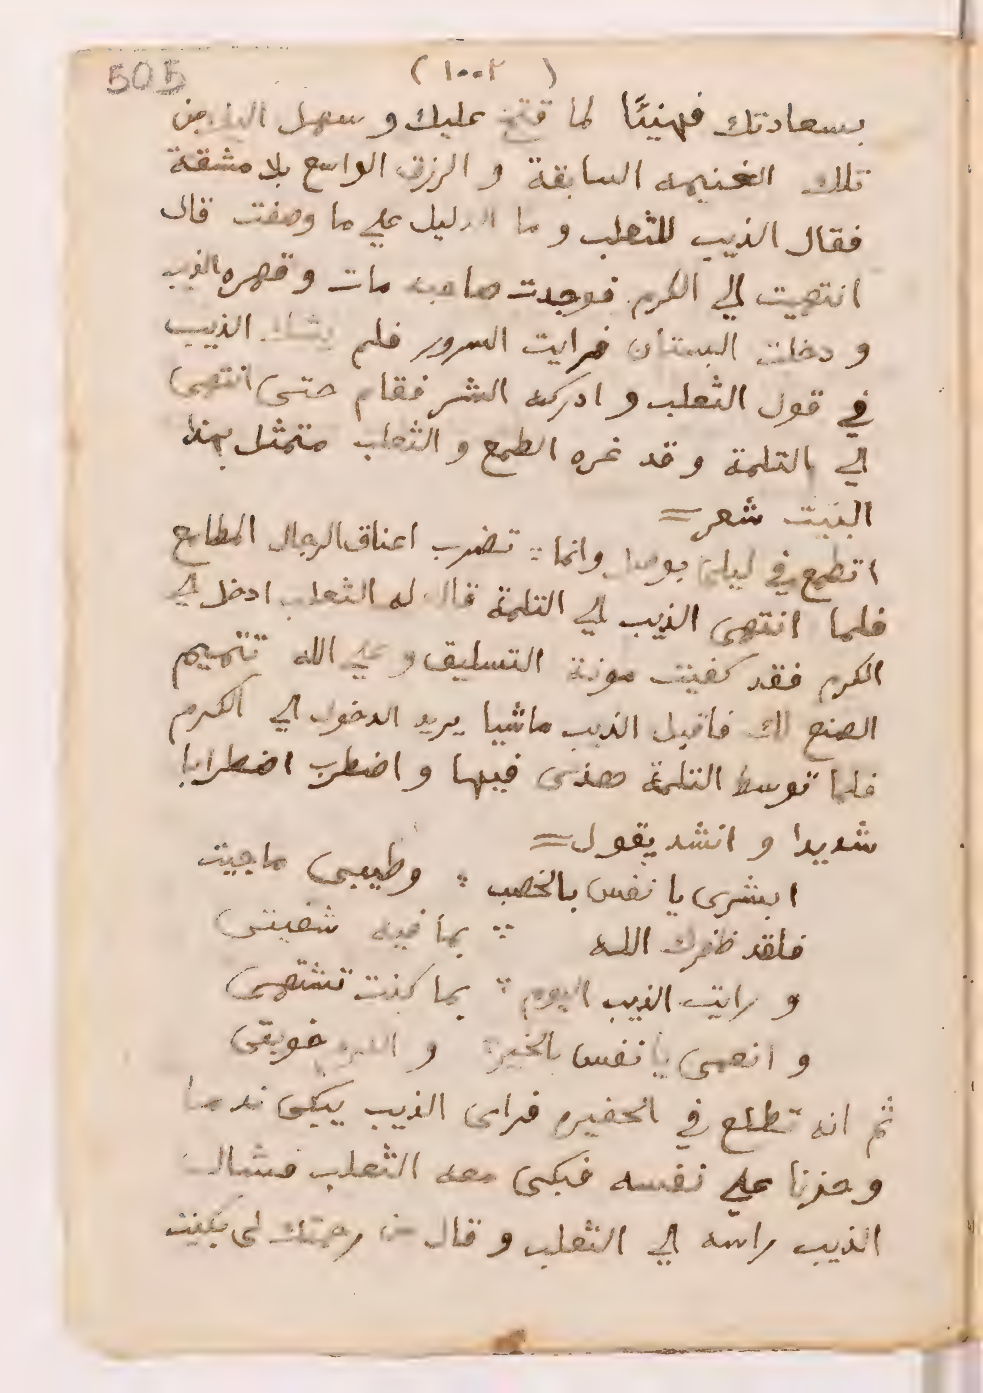 505
( ١٠٠٢ )
بسعادتك فهنيئا لما فتح عليك و سهل اليك من
تلك الغنيمه السابقة و الرزق الواسع بلا مشقة
فقال الذيب للثعلب و ما الدليل علي ما وصفت قال
انتهيت الي الكرم فوجدت صاحبه مات و قهره الذيب
و دخلت البستان فرايت السرور فلم يشك الذيب
في قول الثعلب و ادركه الشر فقام حتى انتهى
الي الثلمة و قد غره الطمع و الثعلب متمثل بهذا
البيت شعر =
اتطمع في ليلى بوصل وانما ∴ تضرب اعناق الرجال المطامع
فلما انتهى الذيب الي الثلمة قال له الثعلب ادخل الي
الكرم فقد كفيت مونة التسليق و علي الله تتميم
الصنع لك فاقبل الذيب ماشيا يريد الدخول الي الكرم
فلما توسط الثلمة هذى فيها و اضطرب اضطرابا
شديدا و انشد يقول =
ابشرى يا نفس بالخصب ∴ وطيبى ما جيت
فلقد ظفرك الله ∴ بما فيه شفيتى
و رايت الذيب اليوم ∴ بما كنت تشتهى
و انعمى يا نفس بالخير و
ثم انه تطلع في الحفيره فراى الذيب يبكى ندما
و حزنا علي نفسه فبكى معه الثعلب فشال
الذيب راسه الي الثعلب و قال من رحمتك لى بكيت